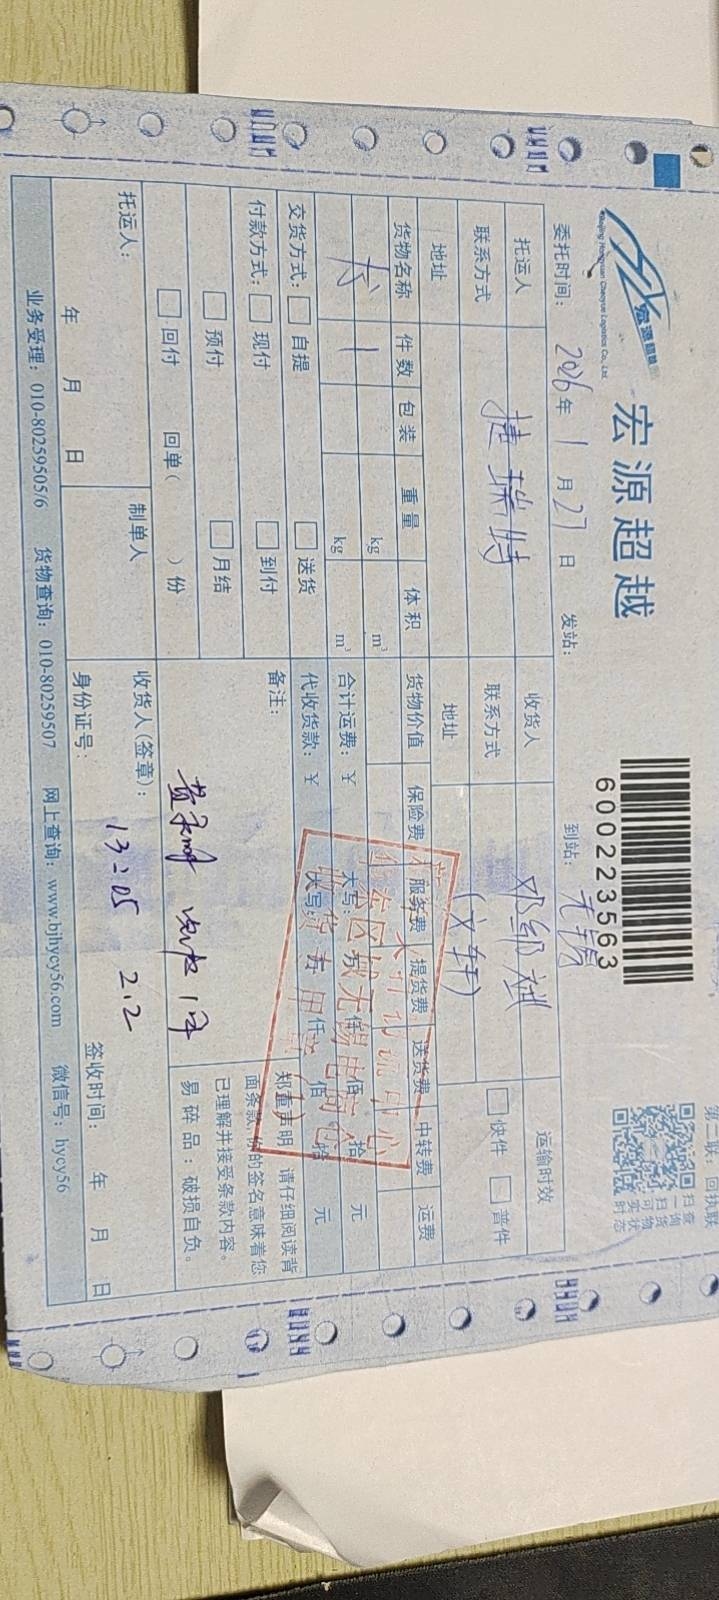 宏源超越
宏源超越
Beijing Hongyuan Chaoyue Logistics Co., Ltd.
600223563
第二联：回执联
扫查
一询
扫货
可物
实状
时态
委托时间：2026年1月27日 发站： 到站：无锡
托运人 捷瑞特 收货人 邓纲斌 运输时效
联系方式 联系方式 (文轩) 快件 普件
地址 地址
货物名称 件数 包装 重量 体积 货物价值 保险费 服务费 提货费 送货费 中转费 运费
书 1 kg m³
kg m³ 合计运费：￥ 大写： 仟 佰 拾 元
交货方式： 自提 送货 代收货款：￥ 大写： 仟 佰 拾 元
付款方式： 现付 到付 备注：
预付 月结
回付 回单（ ）份
郑重声明 请仔细阅读背面条款，你的签名意味着您已理解并接受条款内容。
易碎品：破损自负。
托运人： 制单人 收货人（签章）： 签收时间： 年 月 日
13:05 2.2
年 月 日 身份证号：
业务受理：010-80259505/6 货物查询：010-80259507 网上查询：www.bjhycy56.com 微信号：hycy56